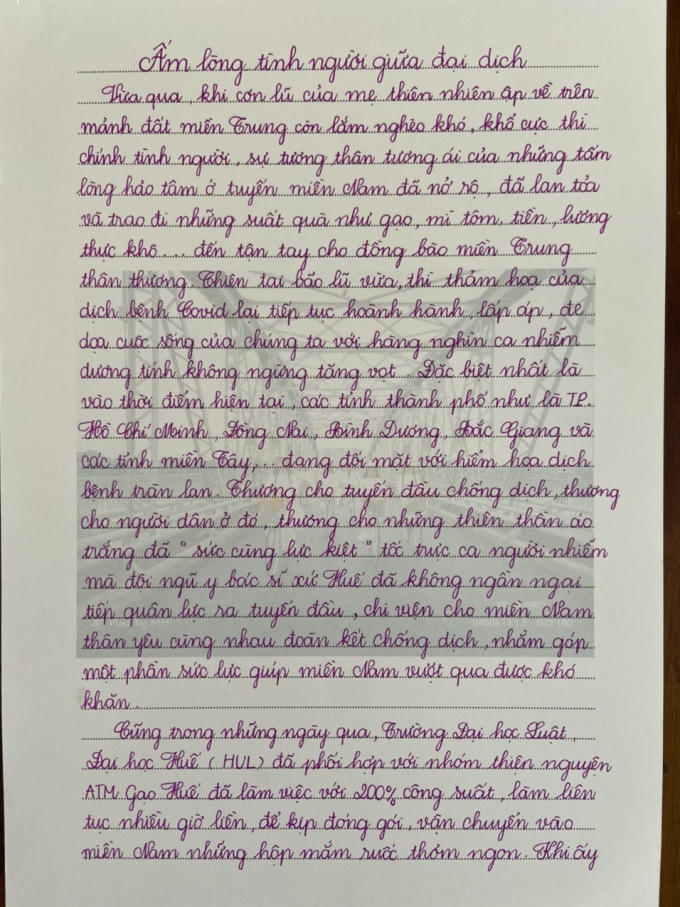 Ấm lòng tình người giữa đại dịch
Vừa qua, khi cơn lũ của mẹ thiên nhiên ập về trên
mảnh đất miền Trung còn lắm nghèo khó, khổ cực thì
chính tình người, sự tương thân tương ái của những tấm
lòng hảo tâm ở tuyến miền Nam đã nở rộ, đã lan tỏa
và trao đi những suất quà như gạo, mì tôm, tiền, lương
thực khô... đến tận tay cho đồng bào miền Trung
thân thương. Thiên tai bão lũ vừa, thì thảm họa của
dịch bệnh Covid lại tiếp tục hoành hành, lấp áp, đe
dọa cuộc sống của chúng ta với hàng nghìn ca nhiễm
dương tính không ngừng tăng vọt. Đặc biệt nhất là
vào thời điểm hiện tại, các tỉnh thành phố như là TP.
Hồ Chí Minh, Đồng Nai, Bình Dương, Bắc Giang và
các tỉnh miền Tây,... đang đối mặt với hiểm họa dịch
bệnh tràn lan. Thương cho tuyến đầu chống dịch, thương
cho người dân ở đó, thương cho những thiên thần áo
trắng đã "sức cùng lực kiệt" tốc trực ca người nhiễm
mà đội ngũ y bác sĩ xứ Huế đã không ngần ngại
tiếp quân lực ra tuyến đầu, chi viện cho miền Nam
thân yêu cùng nhau đoàn kết chống dịch, nhằm góp
một phần sức lực giúp miền Nam vượt qua được khó
khăn.
Cũng trong những ngày qua, Trường Đại học Luật,
Đại học Huế (HUL) đã phối hợp với nhóm thiện nguyện
ATM Gạo Huế đã làm việc với 200% công suất, làm liên
tục nhiều giờ liền, để kịp đóng gói, vận chuyển vào
miền Nam những hộp mắm ruốc thơm ngon. Khi ấy